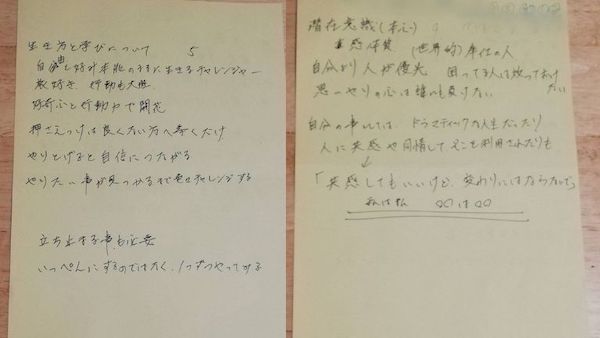 生き方と学びについて 5
自由と好き本能のままに生きるチャレンジャー
旅好き 行動も大胆
好奇心と行動力で開花
押さえつけは良くない方へ導くだけ
やりとげると自信につながる
やりたい事が見つかるまで色々チャレンジする
立ち止まる事も必要
いっぺんにするのではなく、1つずつやってみる
潜在意識(本心) 9
霊感体質 (世界的)奉仕の人
自分より人が優先 困ってる人は放っておけない
思いやりの心は誰にも負けない
自分の事としては、ドラマティックな人生だったり
人に共感や同情して そこを利用されたりも
↓
「共感してもいいけど、変わりにはならない」
私は私 〇〇は〇〇